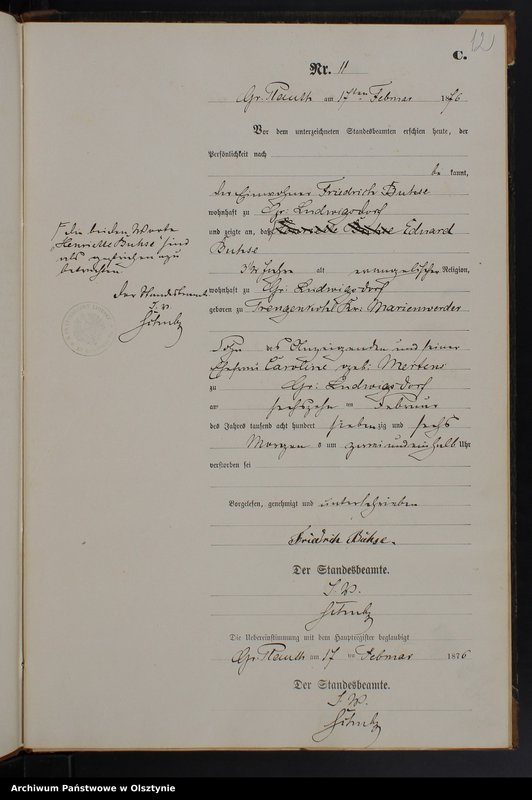 12
C.
Nr. 11
Gr. Plauth am 17ten Februar 1876
Vor dem unterzeichneten Standesbeamten erschien heute, der
Persönlichkeit nach
be kannt,
der Einwohner Friedrich Buhse
wohnhaft zu Gr: Ludwigsdorf
und zeigte an, daß Henriette Buhse Eduard
Buhse
3 1/2 Jahre alt evangelischer Religion,
wohnhaft zu Gr: Ludwigsdorf
geboren zu Kr: Marienwerder
Sohn des Anzeigenden und seiner
Ehefrau Caroline geb: Mertens
zu Gr: Ludwigsdorf
am sechszehn ten Februar
des Jahres tausend acht hundert sieben zig und sechs
Morgen s um zwei und einhalb Uhr
verstorben sei
Vorgelesen, genehmigt und unterschrieben
Friedrich Buhse.
Der Standesbeamte.
I. V.
Die Uebereinstimmung mit dem Hauptregister beglaubigt
Gr. Plauth am 17 ten Februar 1876
Der Standesbeamte.
I. V.
die beiden Worte
"Henriette Buhse" sind
als gestrichen zu
betrachten.
Der Standesbeamte
I. V.
Archiwum Państwowe w Olsztynie